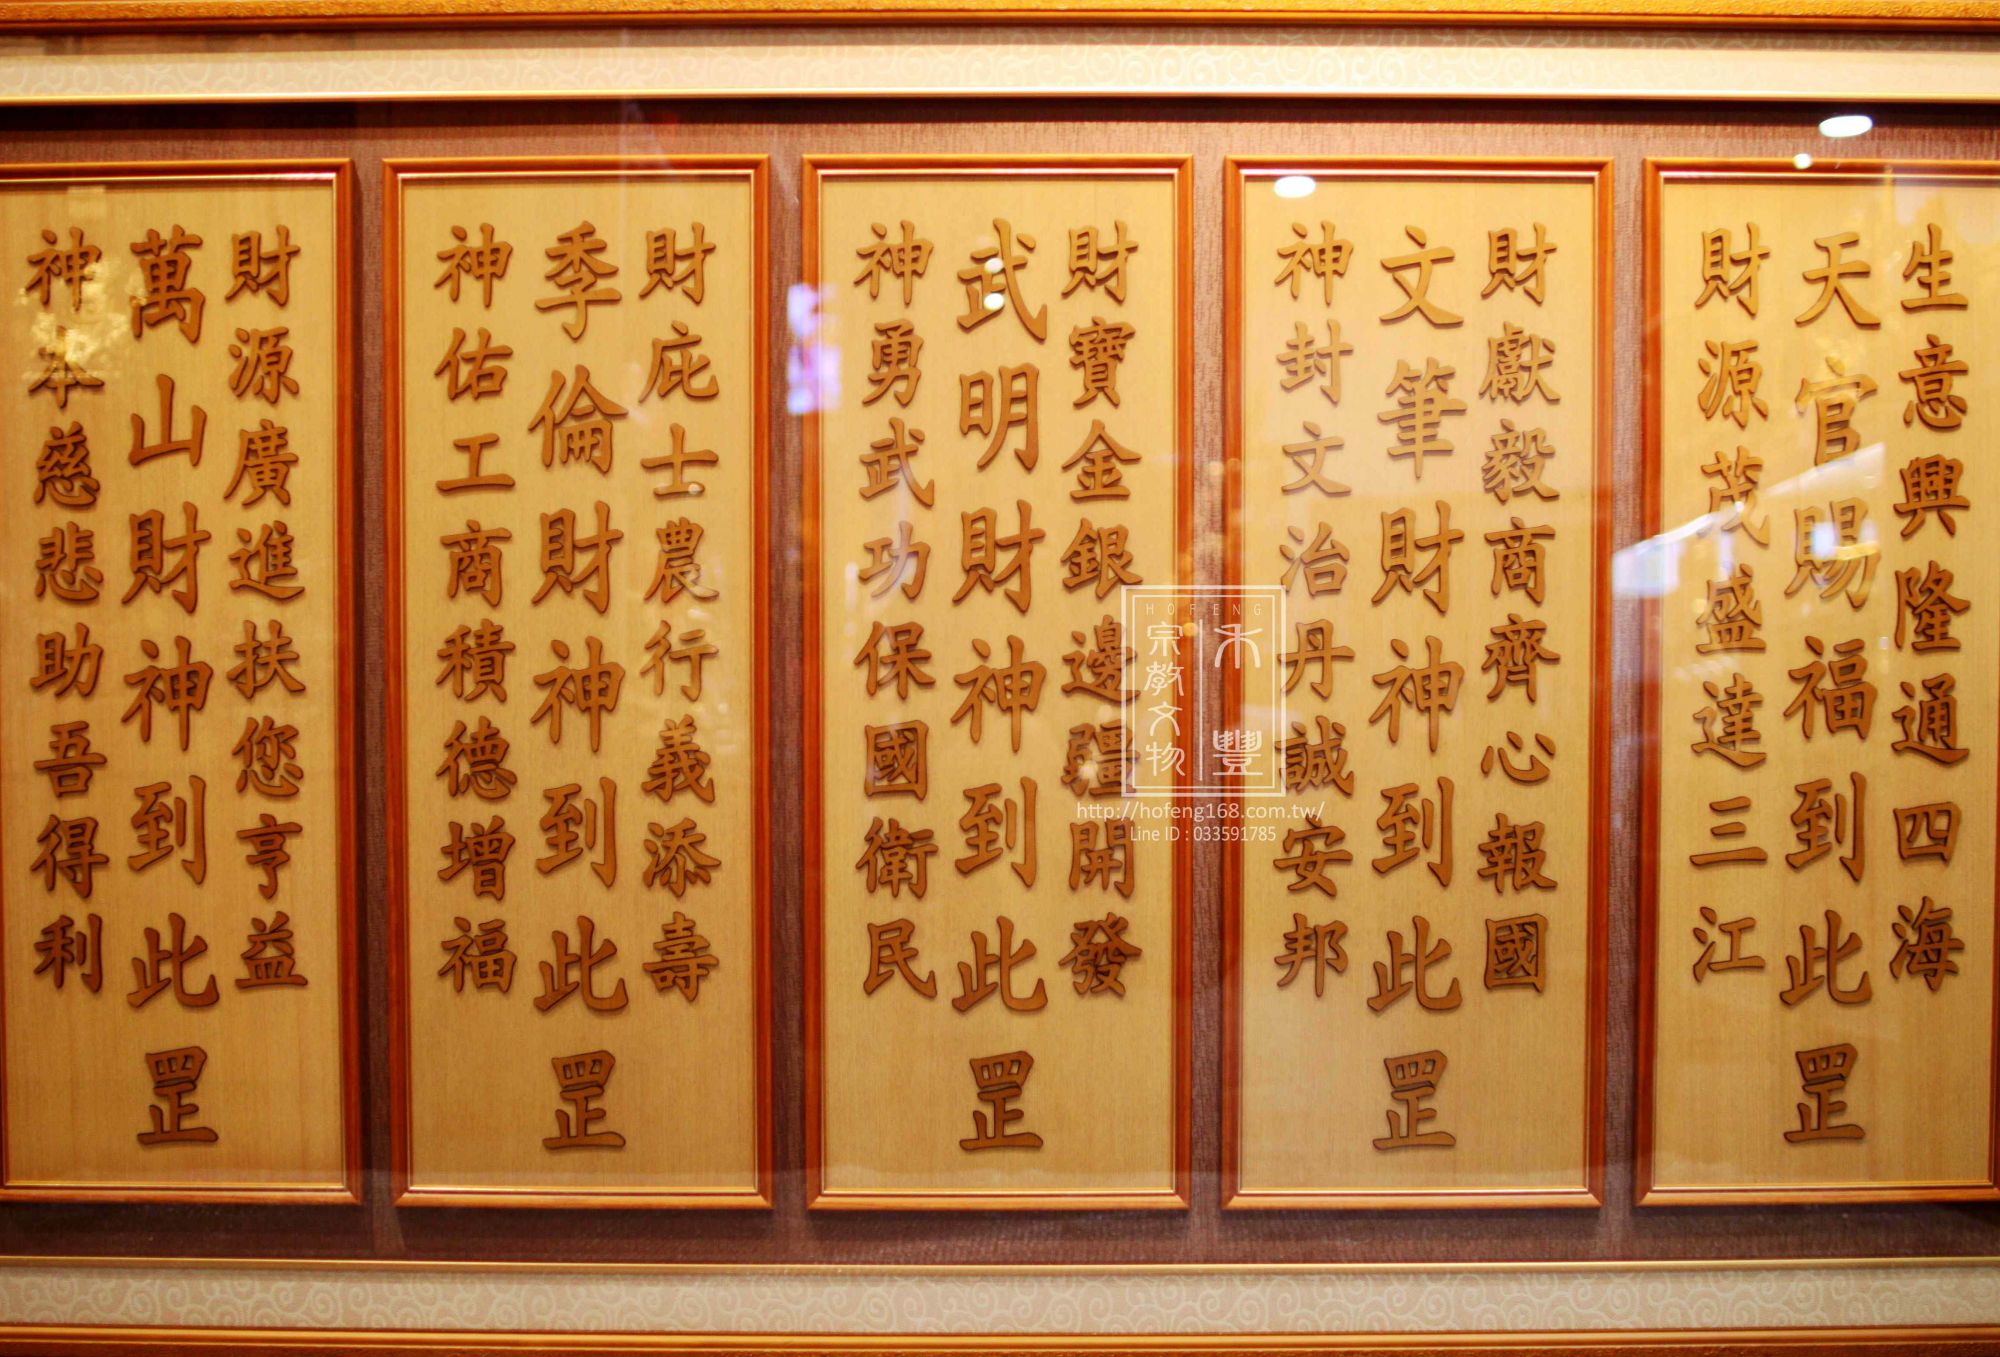 生意興隆通四海
天官賜福到此罡
財源茂盛達三江
財獻毅商齊心報國
文筆財神到此罡
神封文治丹誠安邦
財寶金銀邊疆開發
武明財神到此罡
神勇武功保國衛民
財庇士農行義添壽
季倫財神到此罡
神佑工商積德增福
財源廣進扶您亨益
萬山財神到此罡
神本慈悲助吾得利
HOFENG
禾豐
宗教文物
http://hofeng168.com.tw/
Line ID : 033591785